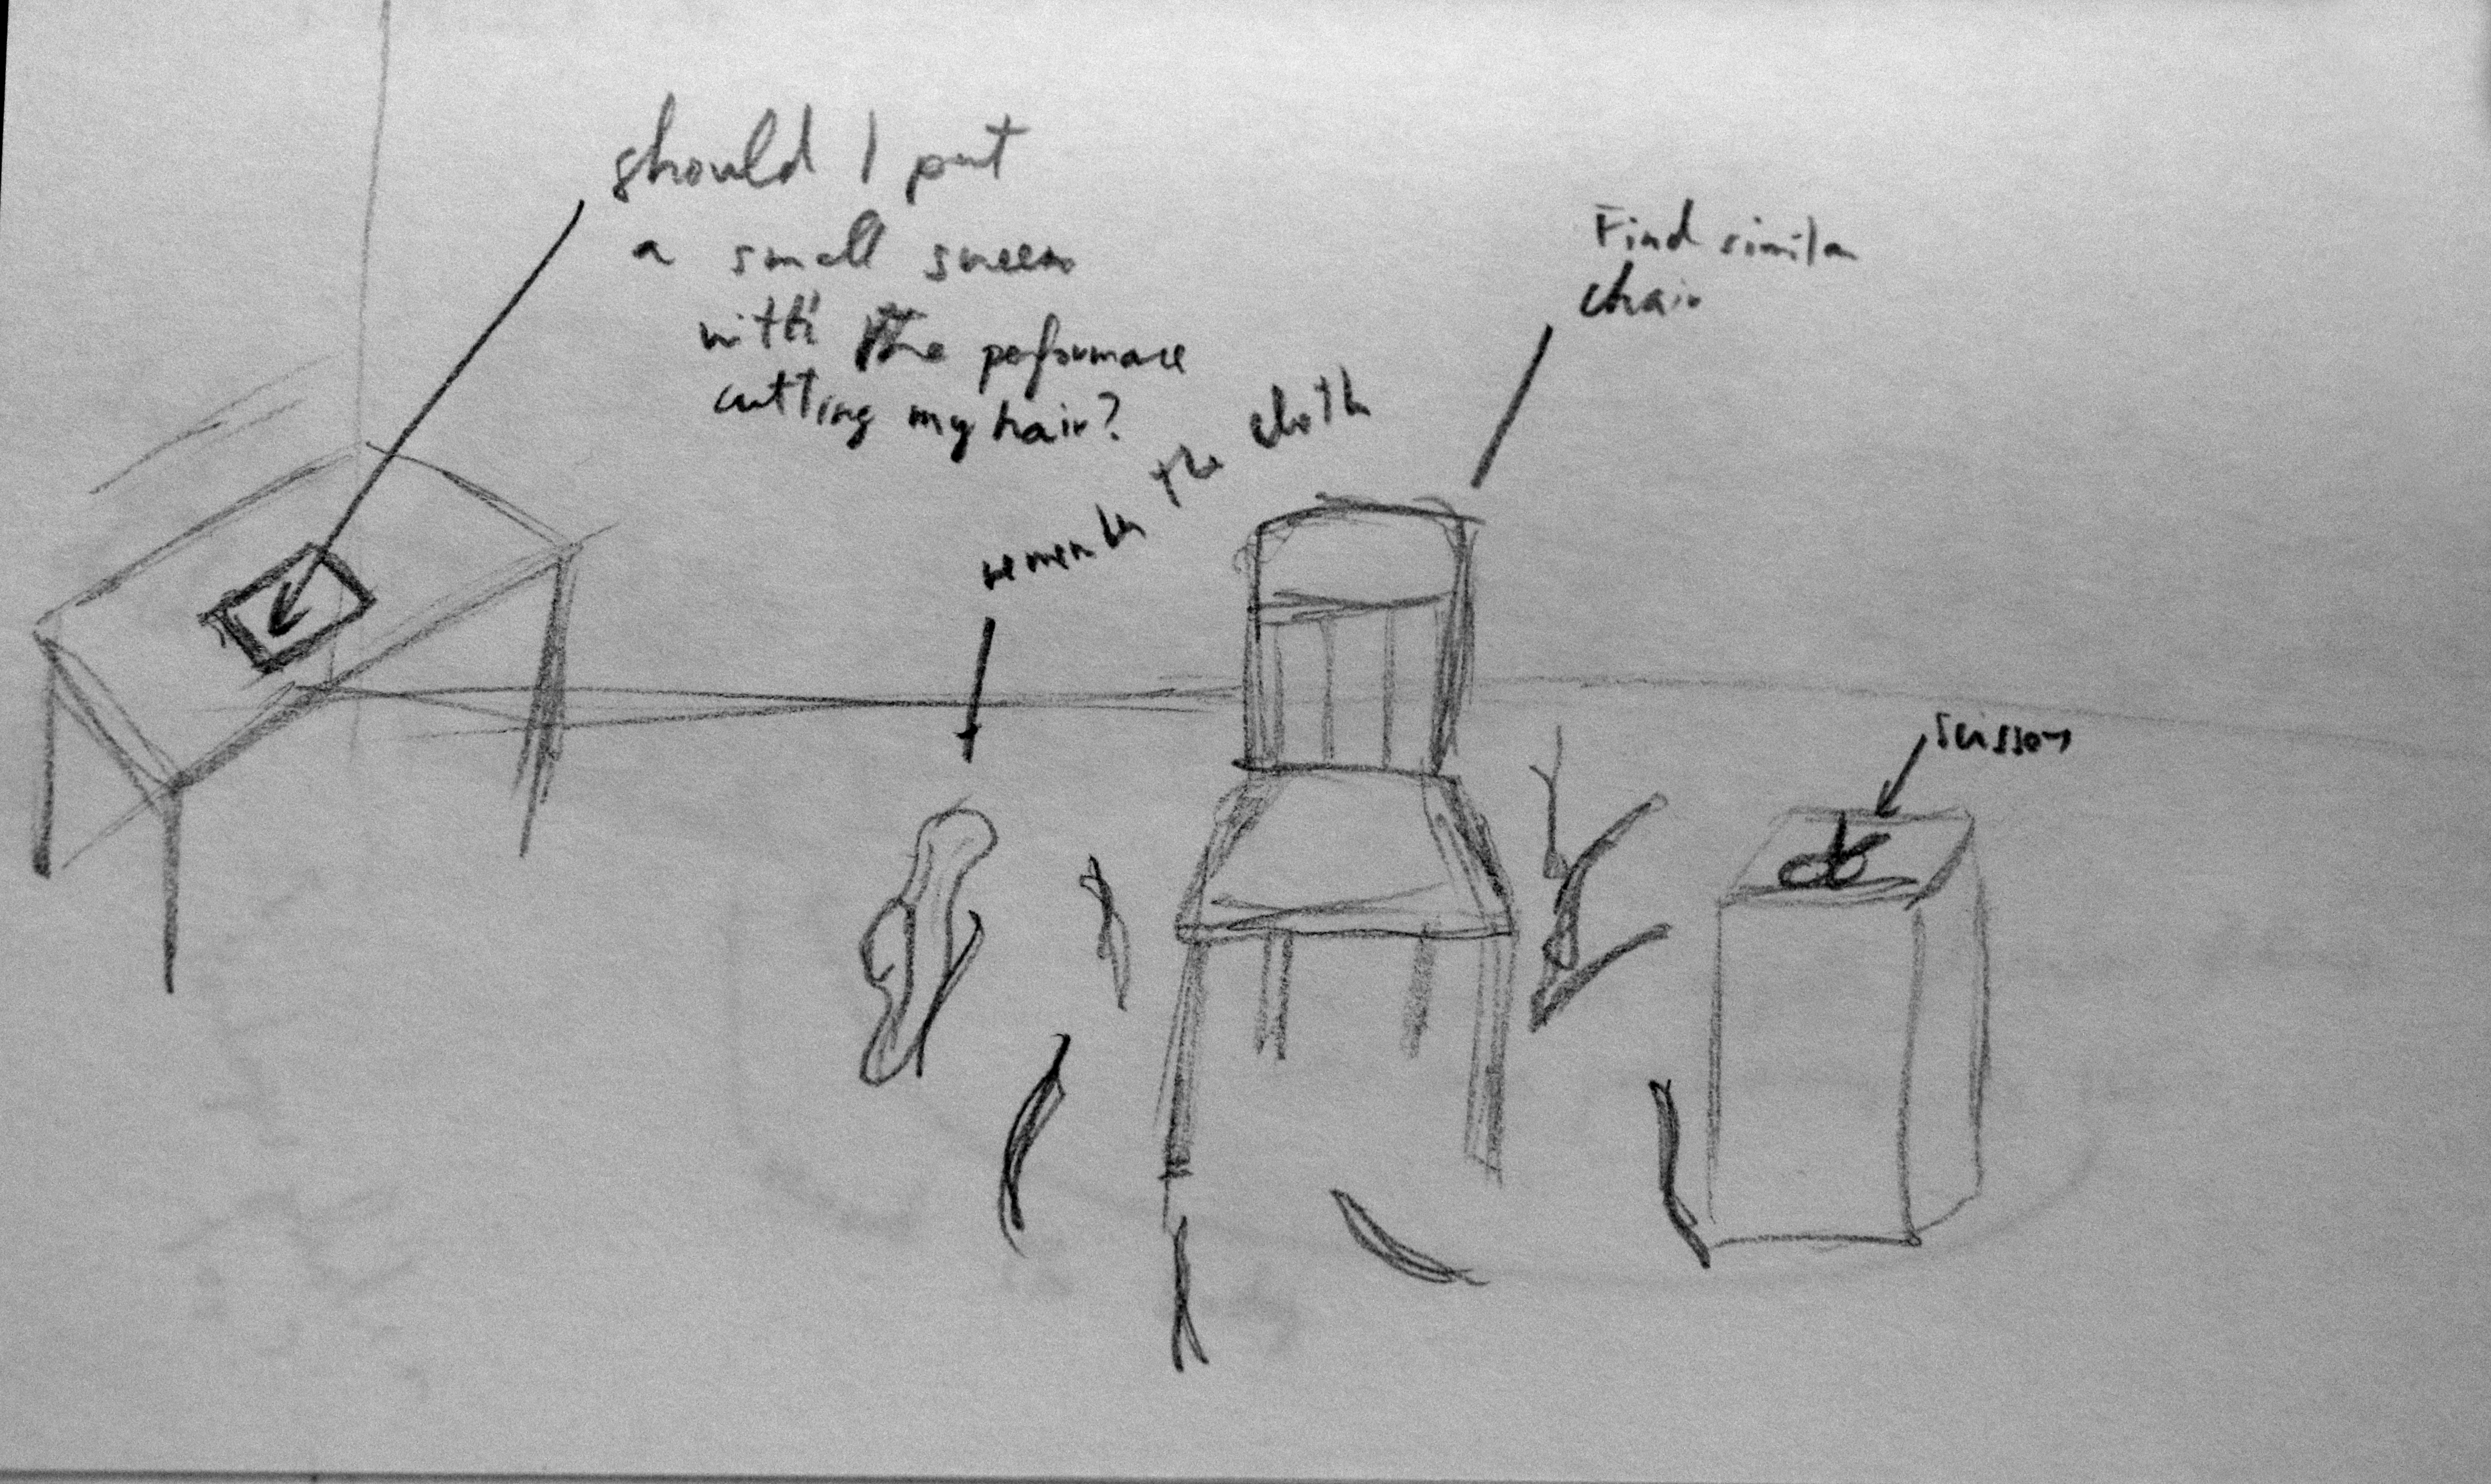 should I put
a small screen
with the performace
cutting my hair?
remember the cloth
Find similar
chair
scissors